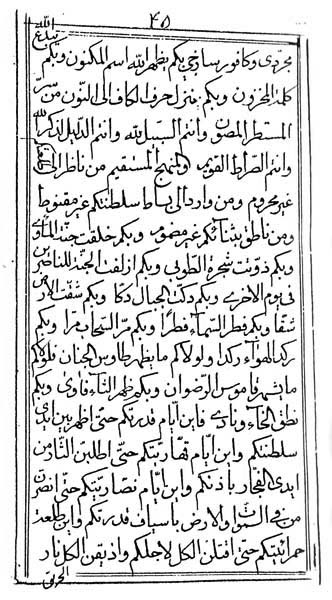 ٤٥
مجردی و کافور ساذجی بکم یظهر الله اسم المکنون و بکم
کلمة المخزون و بکم ینزل حرف الکاف الی النون من سر
المستطر المصون و انتم السبیل لله و انتم الدلیل لذکر الله
و انتم الصراط القویم و المنهج المستقیم من ناظر الی
غیر محروم و من وارد الی بساط سلطنتکم غیر مقنوط
و من ناطق بثنائکم غیر و بکم خلقت جنة الماوی
و بکم ذوتت شجرة الطوبی و بکم ازلفت الجنة
فی یوم الاخری و بکم دکت الجبال دکا و بکم شقت الارض
شقا و بکم فطر السماء فطرا و بکم مر السحاب مرا و بکم
رکد الهواء رکدا و لولاکم ما یظهر طاوس الجنان فلولاکم
ما یشهر قاموس الرضوان و بکم ظهر الثاء و بکم
نطق الخاء و نادی فاین ایام قدرتکم حتی اظهر بین یدی
سلطنتکم و این ایام قهاریتکم حتی اطلبن الثار من
ایدی الفجار باذنکم و این ایام نصاریتکم حتی انصرن
من فی السموات و الارض باسیاف قدرتکم و این طلعة
حمرائیتکم حتی اقتلن الکل لاجلکم و اذیقن الکل نار